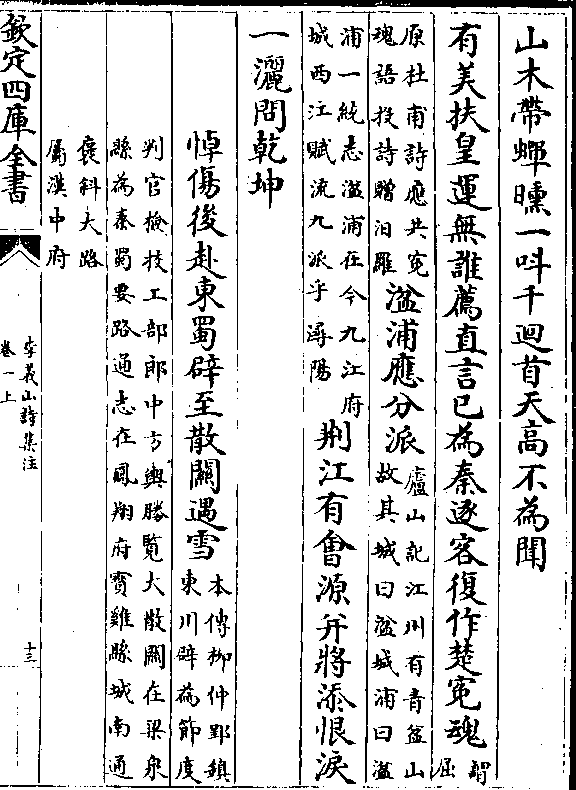 山木帶蟬曛一呌千迴首天高不為聞
有美扶皇運無誰薦直言已為秦逐客復作楚寃魂謂
屈
原杜甫詩應共寃
魂語投詩贈汨羅
湓浦應分派
廬山記江川有青盆山
故其城曰湓城浦曰湓
浦一統志湓浦在今九江府
城西江賦流九派乎潯陽
荆江有會源并將添恨淚
一灑問乾坤
悼傷後赴東蜀辟至散關遇雪
本傳柳仲郢鎮
東川辟為節度
判官檢挍工部郎中方輿勝覽大散關在梁泉
縣為秦蜀要路通志在鳳翔府寳雞縣城南通
褒斜大路
屬漢中府
欽定四庫全書
李義山詩集注
卷一上
十三